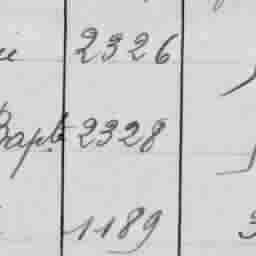 2326
Bapte 2328
1189 3